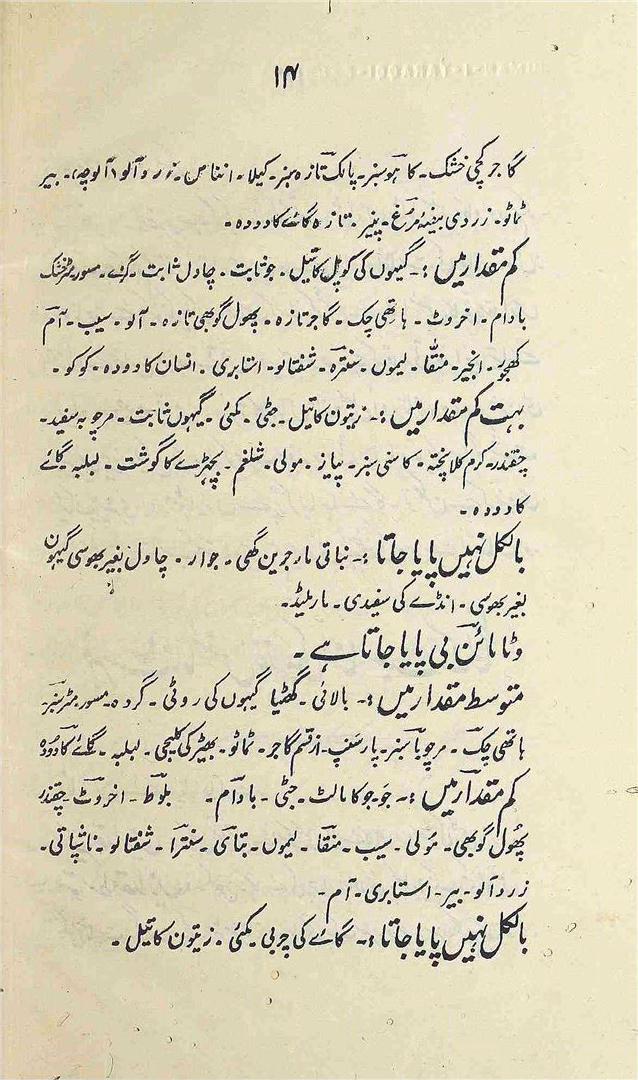 ۱۴
گاجر کچی خشک۔ کاہو سبز۔ پالک تازہ سبز۔ کیلا۔ انناس۔ زرد آلو (آلوچہ)، بیر
ٹماٹو۔ زردی بیضۂ مرغ۔ پنیر۔ تازہ گائے کا دودہ۔
کم مقدار میں :۔ گیہوں کی کوپل کا تیل۔ جو ثابت۔ چاول ثابت۔ گرے۔ مسور مٹر خشک
بادام۔ اخروٹ۔ ہاتھی چک۔ گاجر تازہ۔ پھول گوبھی تازہ۔ آلو۔ سیب۔ آم
کھجور۔ انجیر۔ منقّا۔ لیموں۔ سنترہ۔ شفتالو۔ اسٹابری۔ انسان کا دودہ۔ کوکو۔
بہت کم مقدار میں :۔ زیتون کا تیل۔ جئی۔ مکئی۔ گیہوں ثابت۔ مرچوبہ سفید۔
چقندر۔ کرم کلا پختہ۔ کاسنی سبز۔ پیاز۔ مولی۔ شلغم۔ بچھڑے کا گوشت۔ لبلبہ۔ گائے
کا دودہ۔
بالکل نہیں پایا جاتا :۔ نباتی مارجرین گھی۔ جوار۔ چاول بغیر بھوسی گیہوں
بغیر بھوسی۔ انڈے کی سفیدی۔ مارملیڈ۔
وٹامائن بی پایا جاتا ہے۔
متوسط مقدار میں :۔ بالائی۔ گھٹیا گیہوں کی روٹی۔ گردہ۔ مسور مٹر سبز۔
ہاتھی چک۔ مرچوبا سبز۔ پارسنپ۔ از قسم گاجر۔ ٹماٹو۔ بھیڑ کی کلیجی۔ لبلبہ۔ گائے کا دودہ
کم مقدار میں :۔ جَو جو کا مالٹ۔ جئی۔ بادام۔ بلوط۔ اخروٹ۔ چقندر
پھُول گوبھی۔ مولی۔ سیب۔ منقا۔ لیموں۔ بتاوی۔ سنترا۔ شفتالو۔ ناشپاتی۔
زردآلو۔ بیر۔ اسٹابری۔ آم۔
بالکل نہیں پایا جاتا :۔ گائے کی چربی۔ مکئی۔ زیتون کا تیل۔